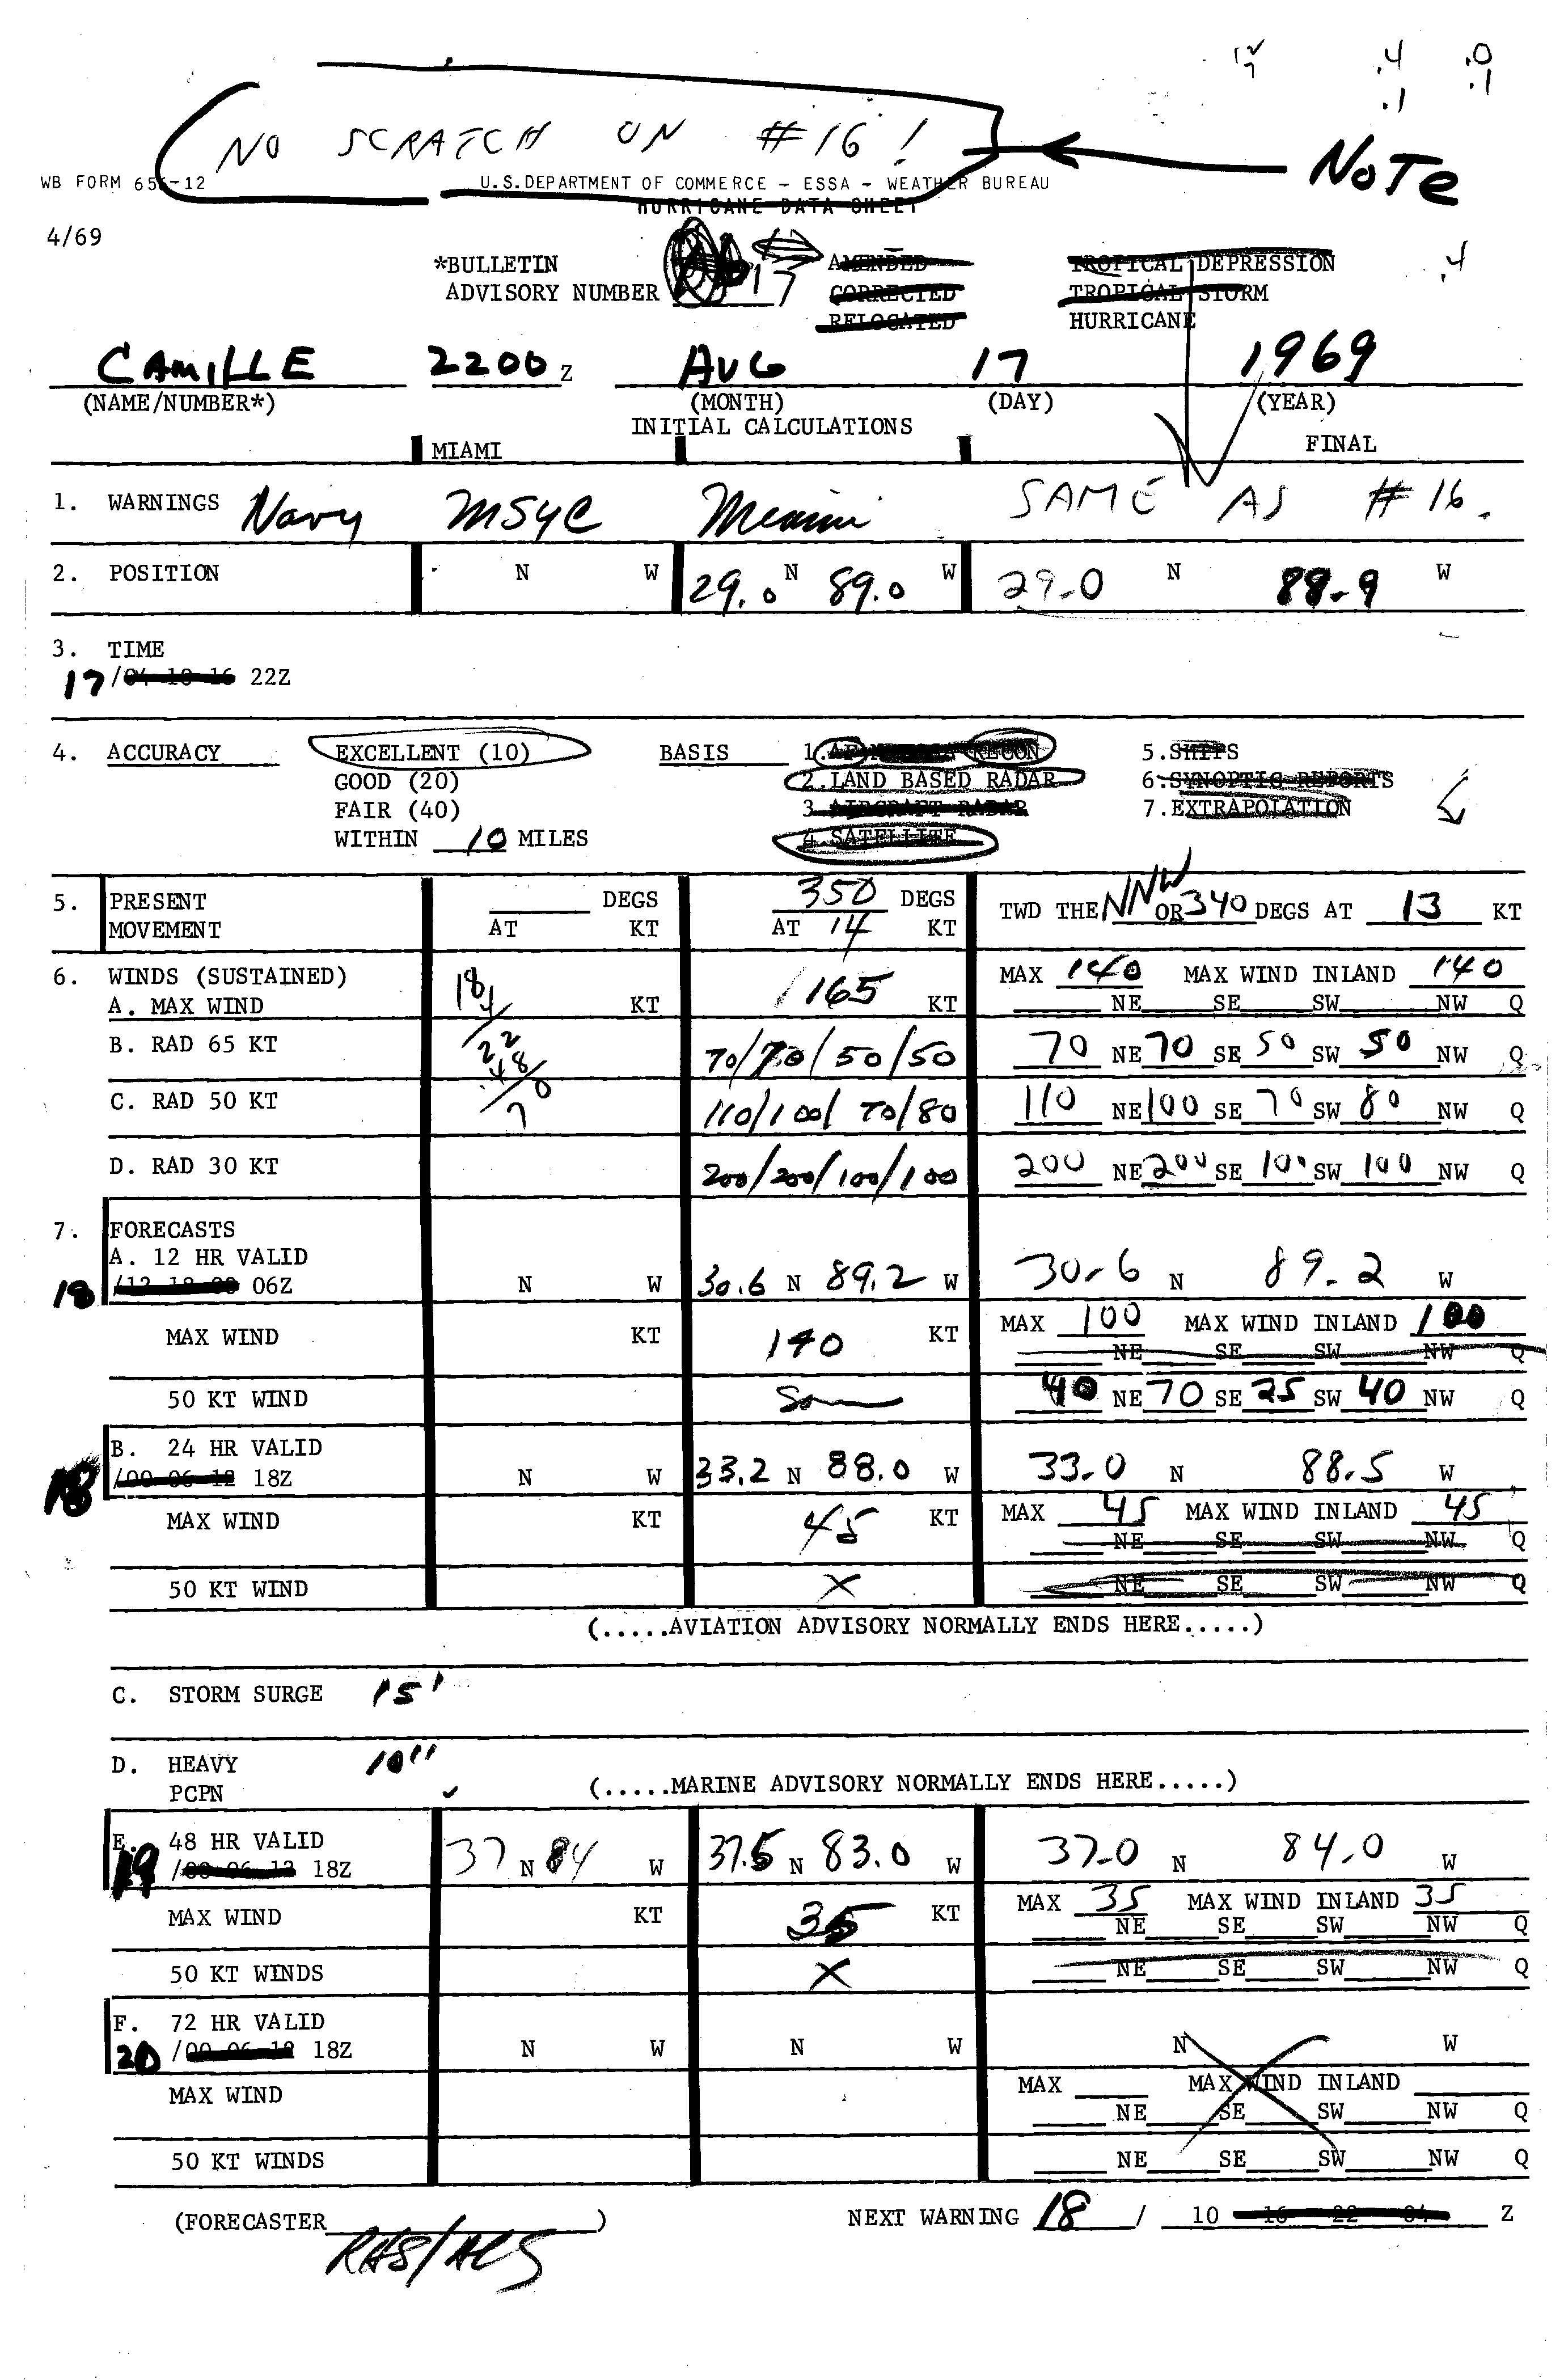 12
7
.4 .0
.1 .1
NO SCRATCH ON #16!
NOTE
WB FORM 656-12
U.S. DEPARTMENT OF COMMERCE - ESSA - WEATHER BUREAU
HURRICANE DATA SHEET
4/69
.4
*BULLETIN AMENDED TROPICAL DEPRESSION
ADVISORY NUMBER 17 CORRECTED TROPICAL STORM
RELOCATED HURRICANE
CAMILLE 2200 Z AUG 17 1969
(NAME/NUMBER*) (MONTH) (DAY) (YEAR)
INITIAL CALCULATIONS
MIAMI FINAL
1. WARNINGS Navy MSYC Miami SAME AS #16.
2. POSITION N W 29.0 N 89.0 W 29.0 N 88.9 W
3. TIME
17/04 10 16 22Z
4. ACCURACY EXCELLENT (10) BASIS 1. AF RECON 5. SHIPS
GOOD (20) 2. LAND BASED RADAR 6. SYNOPTIC REPORTS
FAIR (40) 3 AIRCRAFT RADAR 7. EXTRAPOLATION
WITHIN 10 MILES 4. SATELLITE
5. PRESENT DEGS 350 DEGS TWD THE NNW OR 340 DEGS AT 13 KT
MOVEMENT AT KT AT 14 KT
6. WINDS (SUSTAINED) MAX 140 MAX WIND INLAND 140
A. MAX WIND KT 165 KT NE SE SW NW Q
B. RAD 65 KT 70/70/50/50 70 NE 70 SE 50 SW 50 NW Q
C. RAD 50 KT 110/100/70/80 110 NE 100 SE 70 SW 80 NW Q
D. RAD 30 KT 200/200/100/100 200 NE 200 SE 100 SW 100 NW Q
7. FORECASTS
A. 12 HR VALID
18 /12 18 00 06Z N W 30.6 N 89.2 W 30.6 N 89.2 W
MAX WIND KT 140 KT MAX 100 MAX WIND INLAND 100
NE SE SW NW Q
50 KT WIND 40 NE 70 SE 25 SW 40 NW Q
B. 24 HR VALID
18 /00 06 12 18Z N W 33.2 N 88.0 W 33.0 N 88.5 W
MAX WIND KT 45 KT MAX 45 MAX WIND INLAND 45
NE SE SW NW Q
50 KT WIND X NE SE SW NW Q
(.....AVIATION ADVISORY NORMALLY ENDS HERE.....)
C. STORM SURGE 15'
D. HEAVY 10"
PCPN (.....MARINE ADVISORY NORMALLY ENDS HERE.....)
E. 48 HR VALID
19 /00 06 12 18Z 37 N 84 W 37.5 N 83.0 W 37.0 N 84.0 W
MAX WIND KT 35 KT MAX 35 MAX WIND INLAND 35
NE SE SW NW Q
50 KT WINDS X NE SE SW NW Q
F. 72 HR VALID
20 /00 06 12 18Z N W N W N W
MAX WIND MAX MAX WIND INLAND
NE SE SW NW Q
50 KT WINDS NE SE SW NW Q
(FORECASTER RHS/ ) NEXT WARNING 18 / 10 16 22 04 Z